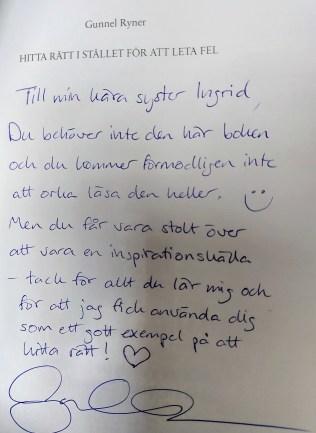 Gunnel Ryner
HITTA RÄTT I STÄLLET FÖR ATT LETA FEL
Till min kära syster Ingrid,
Du behöver inte den här boken
och du kommer förmodligen inte
att orka läsa den heller. :)
Men du får vara stolt över
att vara en inspirationskälla
– tack för allt du lär mig och
för att jag fick använda dig
som ett gott exempel på att
hitta rätt! ♡